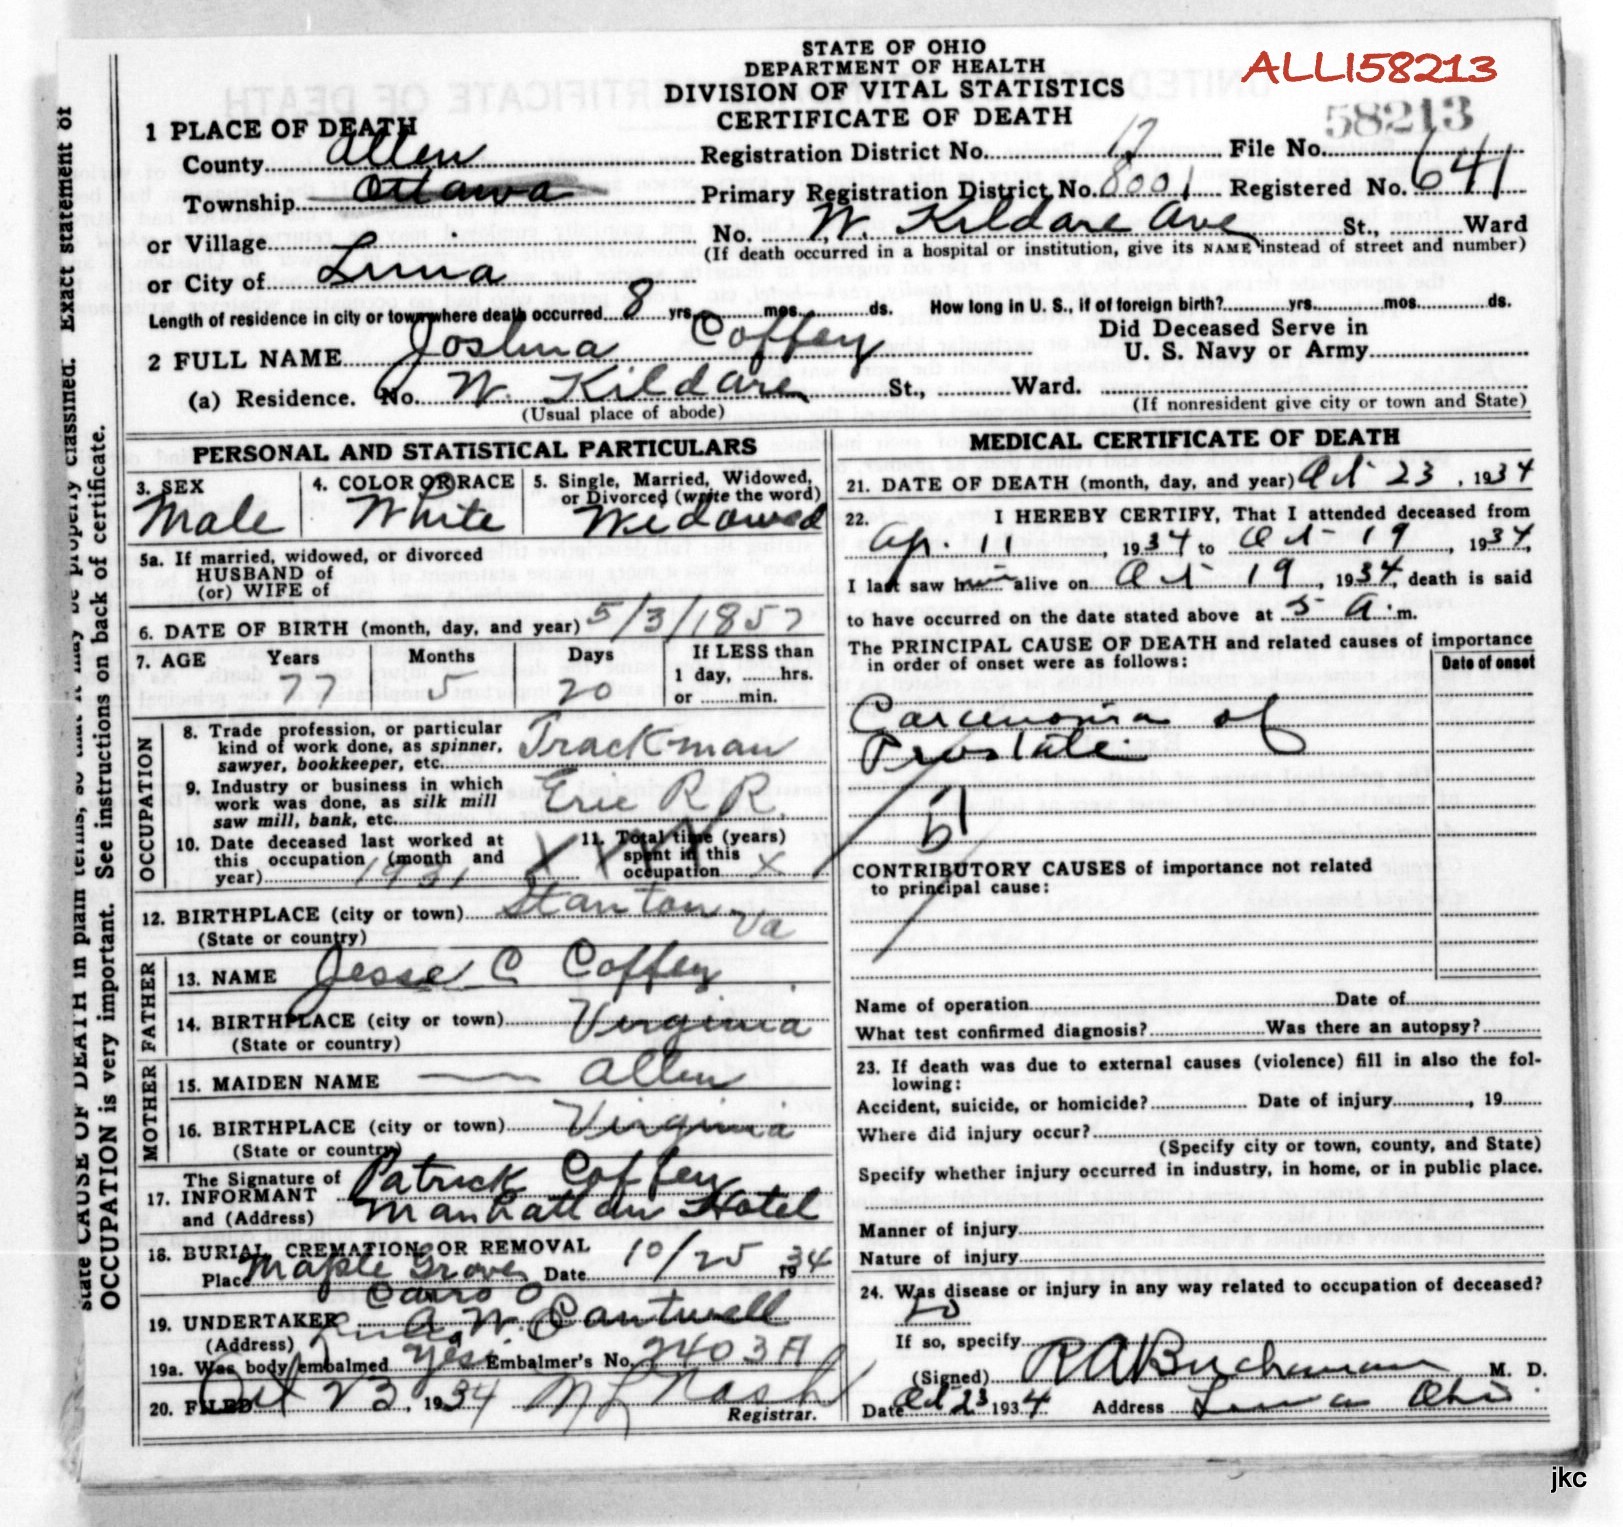 STATE OF OHIO
DEPARTMENT OF HEALTH
DIVISION OF VITAL STATISTICS
CERTIFICATE OF DEATH
ALL158213
58213
1 PLACE OF DEATH
County Allen Registration District No. 17 File No.
Township Ottawa Primary Registration District No. 8001 Registered No. 641
or Village No. W. Kildare Ave St., Ward
(If death occurred in a hospital or institution, give its NAME instead of street and number)
or City of Lima
Length of residence in city or town where death occurred 8 yrs. mos. ds. How long in U. S., if of foreign birth? yrs. mos. ds.
2 FULL NAME Joshua Coffey Did Deceased Serve in U. S. Navy or Army
(a) Residence. No. W. Kildare St., Ward.
(Usual place of abode) (If nonresident give city or town and State)
PERSONAL AND STATISTICAL PARTICULARS
3. SEX Male
4. COLOR OR RACE White
5. Single, Married, Widowed, or Divorced (write the word) Widowed
5a. If married, widowed, or divorced
HUSBAND of
(or) WIFE of
6. DATE OF BIRTH (month, day, and year) 5/3/1857
7. AGE Years Months Days If LESS than
77 5 20 1 day, hrs.
or min.
OCCUPATION
8. Trade profession, or particular
kind of work done, as spinner,
sawyer, bookkeeper, etc. Trackman
9. Industry or business in which
work was done, as silk mill
saw mill, bank, etc. Erie R R.
10. Date deceased last worked at
this occupation (month and
year) 1931
11. Total time (years)
spent in this
occupation X
12. BIRTHPLACE (city or town) Stanton Va
(State or country)
FATHER
13. NAME Jesse C Coffey
14. BIRTHPLACE (city or town) Virginia
(State or country)
MOTHER
15. MAIDEN NAME — Allen
16. BIRTHPLACE (city or town) Virginia
(State or country)
The Signature of Patrick Coffey
17. INFORMANT
and (Address) Manhattan Hotel
18. BURIAL, CREMATION, OR REMOVAL
Place Maple Grove Date 10/25 1934
Cairo O
19. UNDERTAKER A. W. Cantwell
(Address) Lima, O
19a. Was body embalmed Yes. Embalmer's No. 2403A
20. FILED Oct 23, 1934 Nash
Registrar.
MEDICAL CERTIFICATE OF DEATH
21. DATE OF DEATH (month, day, and year) Oct 23, 1934
22. I HEREBY CERTIFY, That I attended deceased from
Ap. 11, 1934 to Oct 19, 1934,
I last saw him alive on Oct 19, 1934, death is said
to have occurred on the date stated above at 5 A. m.
The PRINCIPAL CAUSE OF DEATH and related causes of importance
in order of onset were as follows:
Date of onset
Carcinoma of
Prostate
CONTRIBUTORY CAUSES of importance not related
to principal cause:
Name of operation Date of
What test confirmed diagnosis? Was there an autopsy?
23. If death was due to external causes (violence) fill in also the fol-
lowing:
Accident, suicide, or homicide? Date of injury, 19
Where did injury occur?
(Specify city or town, county, and State)
Specify whether injury occurred in industry, in home, or in public place.
Manner of injury
Nature of injury
24. Was disease or injury in any way related to occupation of deceased?
No
If so, specify
(Signed) R A Buchanan M. D.
Date Oct 23 1934 Address Lima Ohio
state CAUSE OF DEATH in plain terms, so that it may be properly classified. Exact statement of
OCCUPATION is very important. See instructions on back of certificate.
jkc